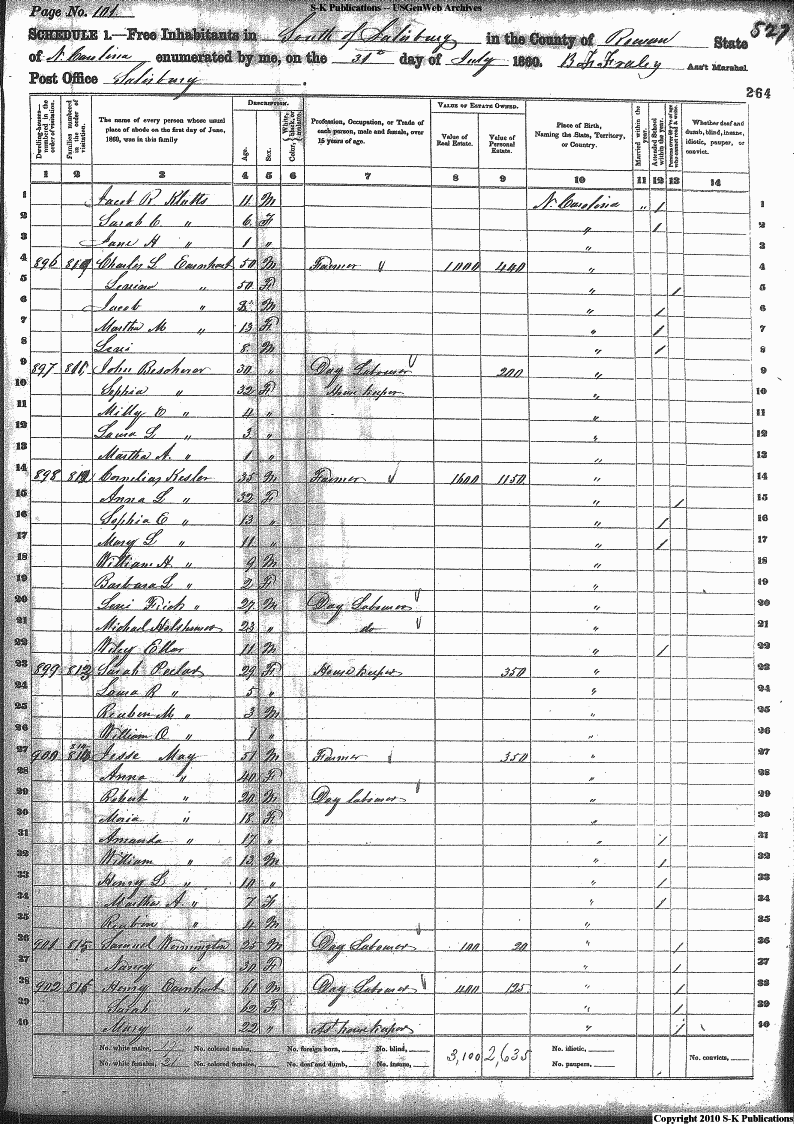 S-K Publications -- USGenWeb Archives
Page No. 101
527
SCHEDULE 1.—Free Inhabitants in South of Salisbury in the County of Rowan State
of N. Carolina enumerated by me, on the 31st day of July 1860. B F Fraley Ass't Marshal.
Post Office Salisbury
264
Dwelling-houses—numbered in the order of visitation.
Families numbered in the order of visitation.
The name of every person whose usual place of abode on the first day of June, 1860, was in this family
DESCRIPTION.
Age.
Sex.
Color, White, black, or mulatto.
Profession, Occupation, or Trade of each person, male and female, over 15 years of age.
VALUE OF ESTATE OWNED.
Value of Real Estate.
Value of Personal Estate.
Place of Birth, Naming the State, Territory, or Country.
Married within the year.
Attended School within the year.
Persons over 20 y'rs of age who cannot read & write.
Whether deaf and dumb, blind, insane, idiotic, pauper, or convict.
1 2 3 4 5 6 7 8 9 10 11 12 13 14
1 Jacob R Klutts 11 M N. Carolina " / 1
2 Sarah C " 6 F " / 2
3 Jane H " 1 " " 3
4 896 Charles L Earnhart 50 M Farmer 1000 440 " 4
5 " 50 F " / 5
6 Jacob " M " / 6
7 Martha M " 13 F " / 7
8 Levi 8 M " / 8
9 897 John 30 " Day Laborer 200 " 9
10 Sophia " 32 F House keeper " 10
11 Milly C " 4 " " 11
12 Laura L " 3 " " 12
13 Martha A. " 1 " " 13
14 898 Cornelius Kesler 35 M Farmer 1600 1150 " 14
15 Anna L " 32 F " / 15
16 Sophia E " 13 " " / 16
17 Mary L " 11 " " / 17
18 William H " 9 M " 18
19 Barbara L " 2 F " 19
20 Levi Frick " 27 M Day Laborer " 20
21 Michael Holshouser 23 " do " 21
22 Wiley Eller 11 M " / 22
23 899 812 Sarah 29 F House keeper 350 " 23
24 Laura R " 5 " " 24
25 Reuben M " 3 M " 25
26 William C " 1 " " 26
27 900 Jesse May 51 M Farmer 350 " 27
28 Anna " 40 F " 28
29 Robert " 20 M Day laborer " 29
30 Maria " 18 F " 30
31 Amanda " 17 " " / 31
32 William " 13 M " / 32
33 Henry L " 10 " " / 33
34 Martha A " 7 F " / 34
35 Reubin " 4 M " 35
36 901 815 Samuel 25 M Day Laborer 100 20 " / 36
37 Nancy " 30 F " / 37
38 902 Henry Earnhart 61 M Day Laborer 400 125 " / 38
39 Sarah " 62 F " / 39
40 Mary " 22 " house keeper " / 40
No. white males, 19 No. colored males, No. foreign born, No. blind, 3,100 2,635 No. idiotic, No. convicts,
No. white females, 21 No. colored females, No. deaf and dumb, No. insane, No. paupers,
Copyright 2010 S-K Publications